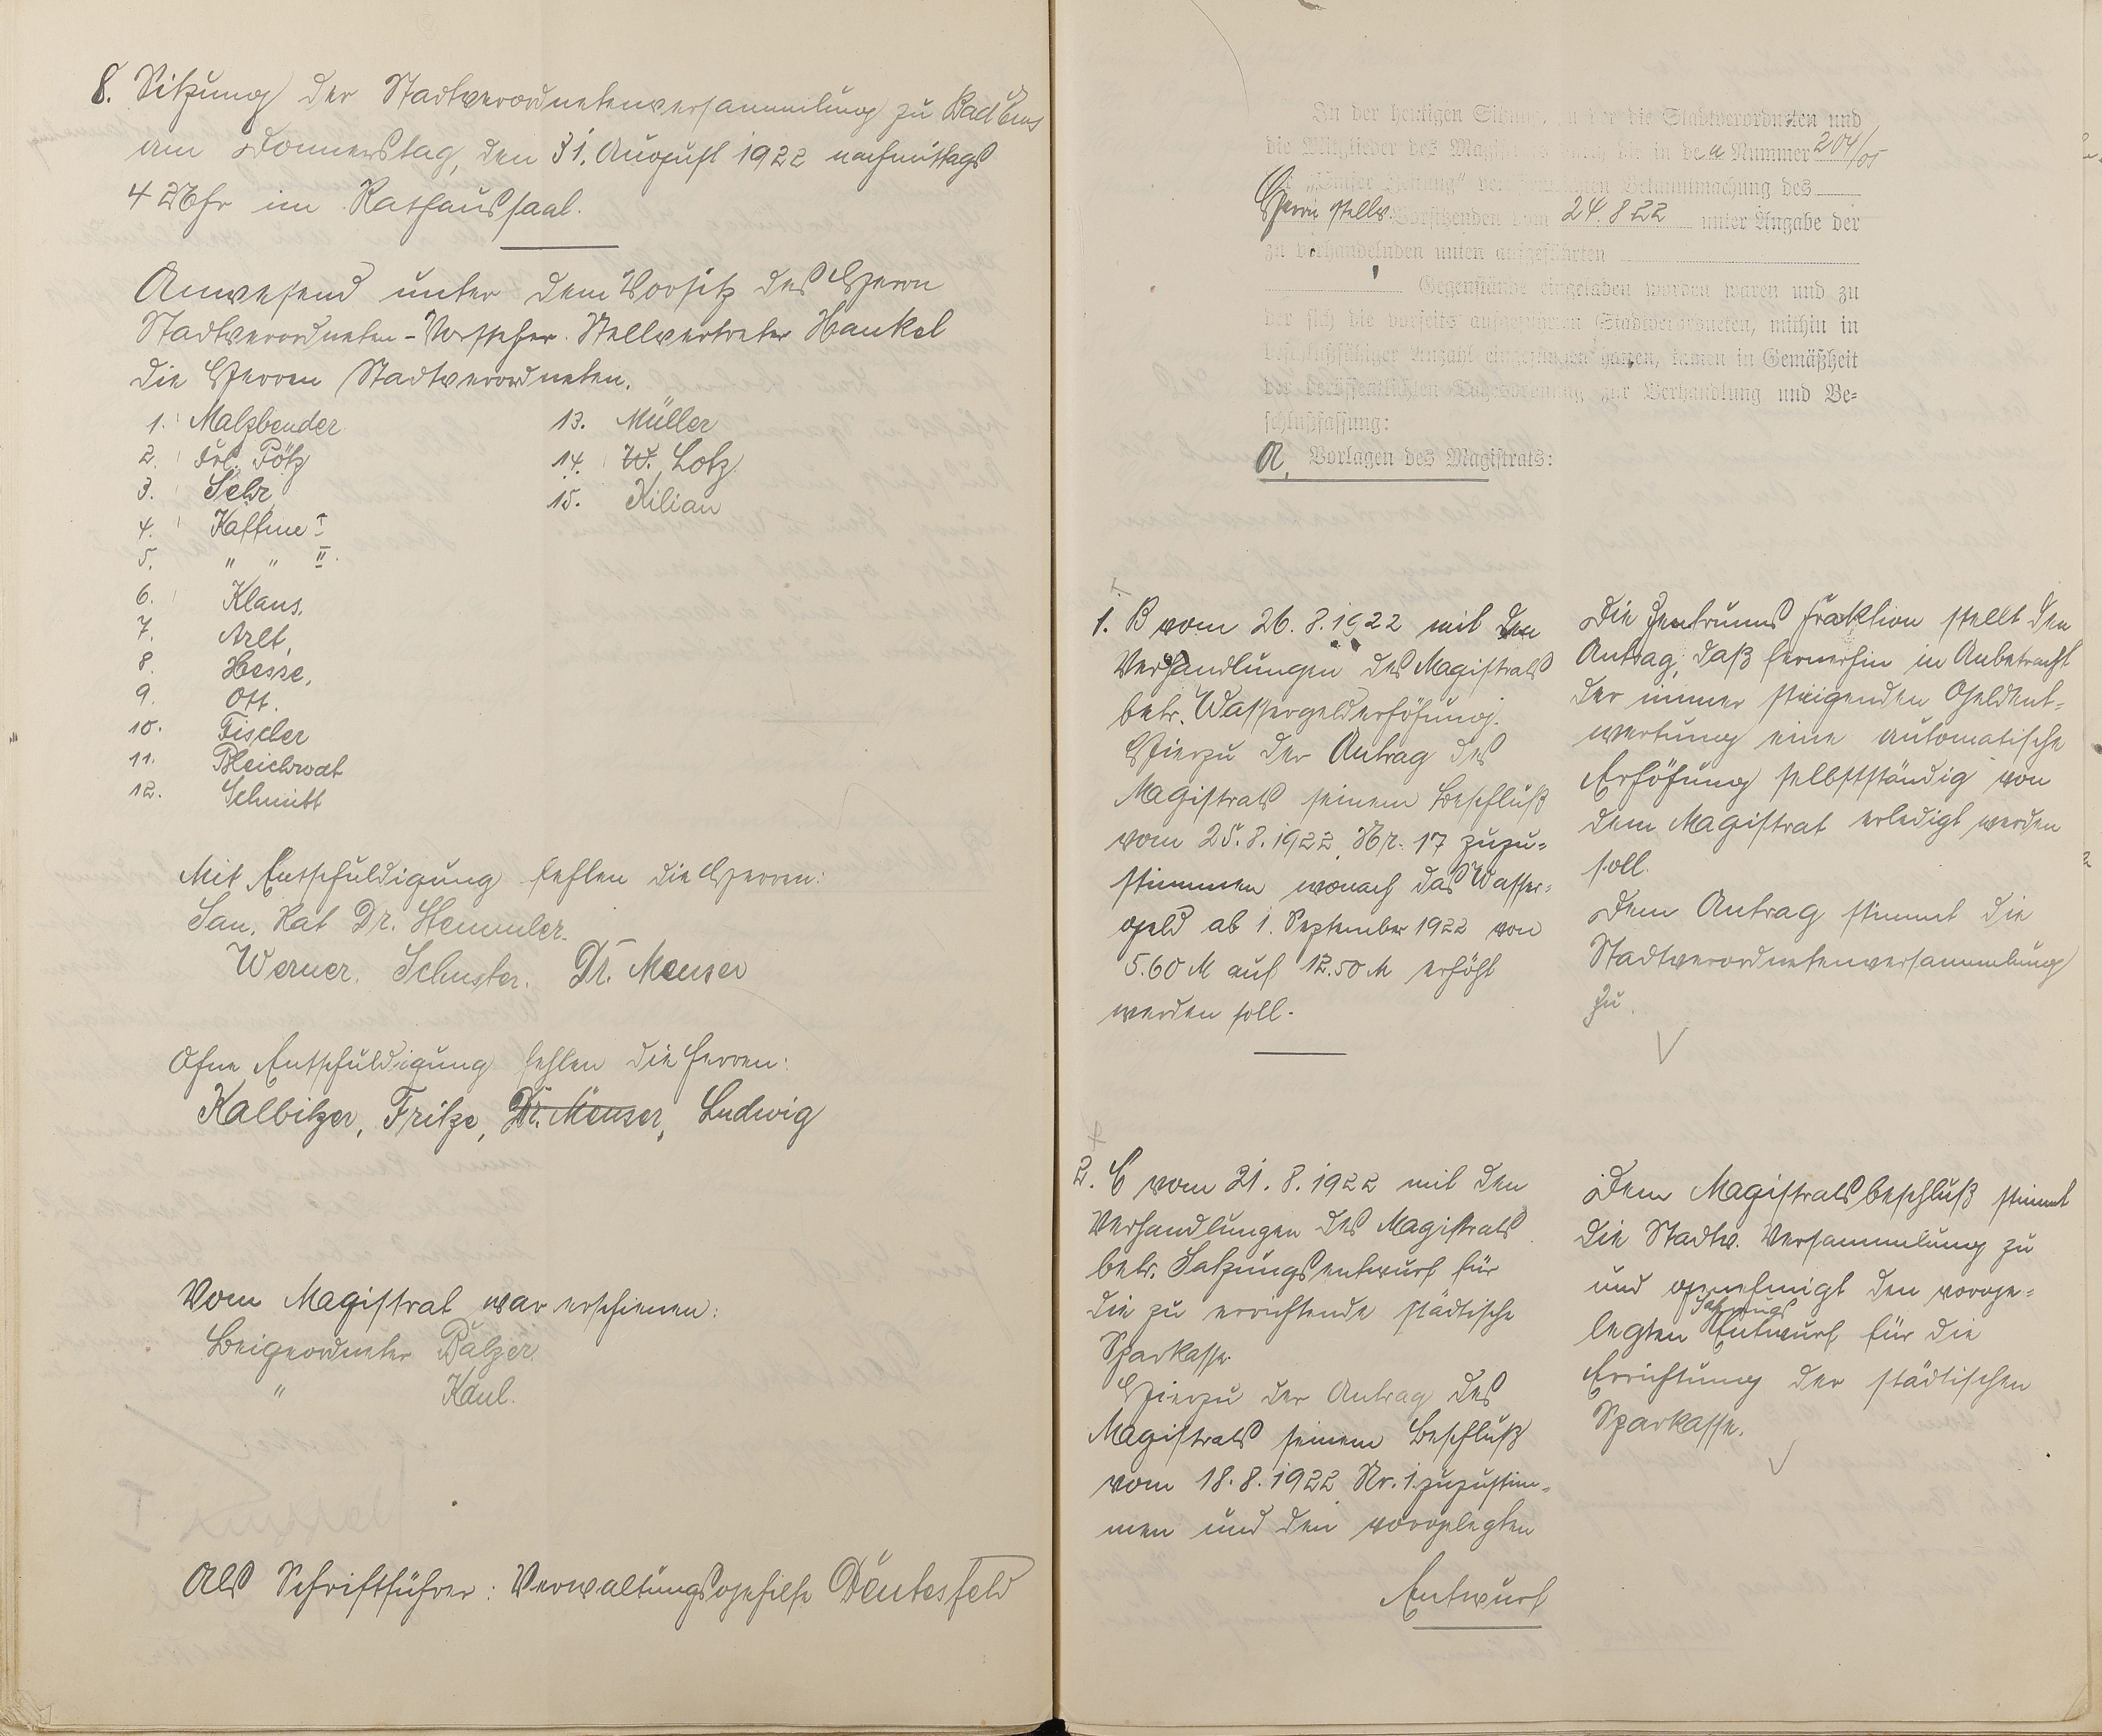 8. Sitzung der Stadtverordnetenversammlung zu Bad Ems
am Donnerstag, den 31. August 1922 nachmittags
4 Uhr im Rathaussaal.
Anwesend unter dem Vorsitz des Herrn
Stadtverordneten-Vorsteher-Stellvertreter Hankel
die Herren Stadtverordneten.
1. Malzbender
2. Frl. Pötz
3. Sehr
4. Kaffine I
5. " " II.
6. Klaus.
7. Arlt,
8. Hesse,
9. Ott.
10. Fischer
11. Bleichrodt
12. Schmitt
13. Müller
14. W. Lotz
15. Kilian
Mit Entschuldigung fehlen die Herren:
San. Rat Dr. Stemmler.
Werner. Schuster. Dr. Meuser
Ohne Entschuldigung fehlen die Herren:
Kalbitzer, Fritze, Dr. Meuser, Ludwig
Vom Magistrat war erschienen:
Beigeordneter Balzer.
" Kaul.
Als Schriftführer: Verwaltungsgehilfe Deutesfeld
In der heutigen Sitzung, zu der die Stadtverordneten und
die Mitglieder des Magistrats durch die in den Nummer 204/05
der „Emser Zeitung“ veröffentlichten Bekanntmachung des
Herrn stellv. Vorsitzenden vom 24.8 22 unter Angabe der
zu verhandelnden unten aufgeführten
Gegenstände eingeladen worden waren und zu
der sich die vorseits aufgeführten Stadtverordneten, mithin in
beschlußfähiger Anzahl eingefunden hatten, kamen in Gemäßheit
der veröffentlichten Tagesordnung zur Verhandlung und Be-
schlußfassung:
A. Vorlagen des Magistrats:
1. B vom 26.8.1922 mit den
Verhandlungen des Magistrats
betr. Wassergelderhöhung.
Hierzu der Antrag des
Magistrats seinem Beschluß
vom 25.8.1922 Nr. 17 zuzu-
stimmen wonach das Wasser-
geld ab 1. September 1922 von
5.60 M auf 12.50 M erhöht
werden soll.
Die Zentrums Fraktion stellt den
Antrag, daß fernerhin in Anbetracht
der immer steigenden Geldent-
wertung eine automatische
Erhöhung selbstständig von
dem Magistrat erledigt werden
soll.
Dem Antrag stimmt die
Stadtverordnetenversammlung
zu.
2. C vom 21.8.1922 mit den
Verhandlungen des Magistrats
betr. Satzungsentwurf für
die zu errichtende städtische
Sparkasse.
Hierzu der Antrag des
Magistrats seinem Beschluß
vom 18.8.1922 Nr. 1 zuzustim-
men und den vorgelegten
Entwurf
Dem Magistratsbeschluß stimmt
die Stadtv. Versammlung zu
und genehmigt den vorge-
Satzungs
legten Entwurf für die
Errichtung der städtischen
Sparkasse.